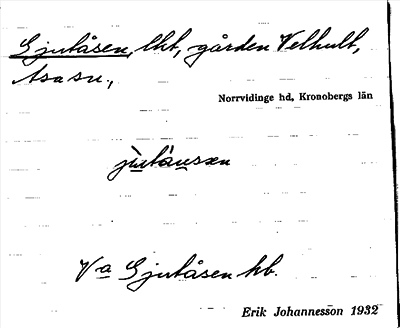 Gjutåsen, lht, gården Velhult,
Asa sn,
Norrvidinge hd, Kronobergs län
jutåusen
Va Gjutåsen hb.
Erik Johannesson 1932